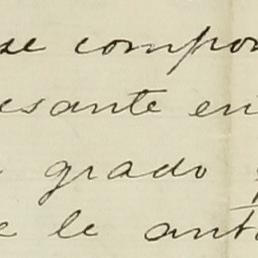 se compon
esante en
grado
e le ant